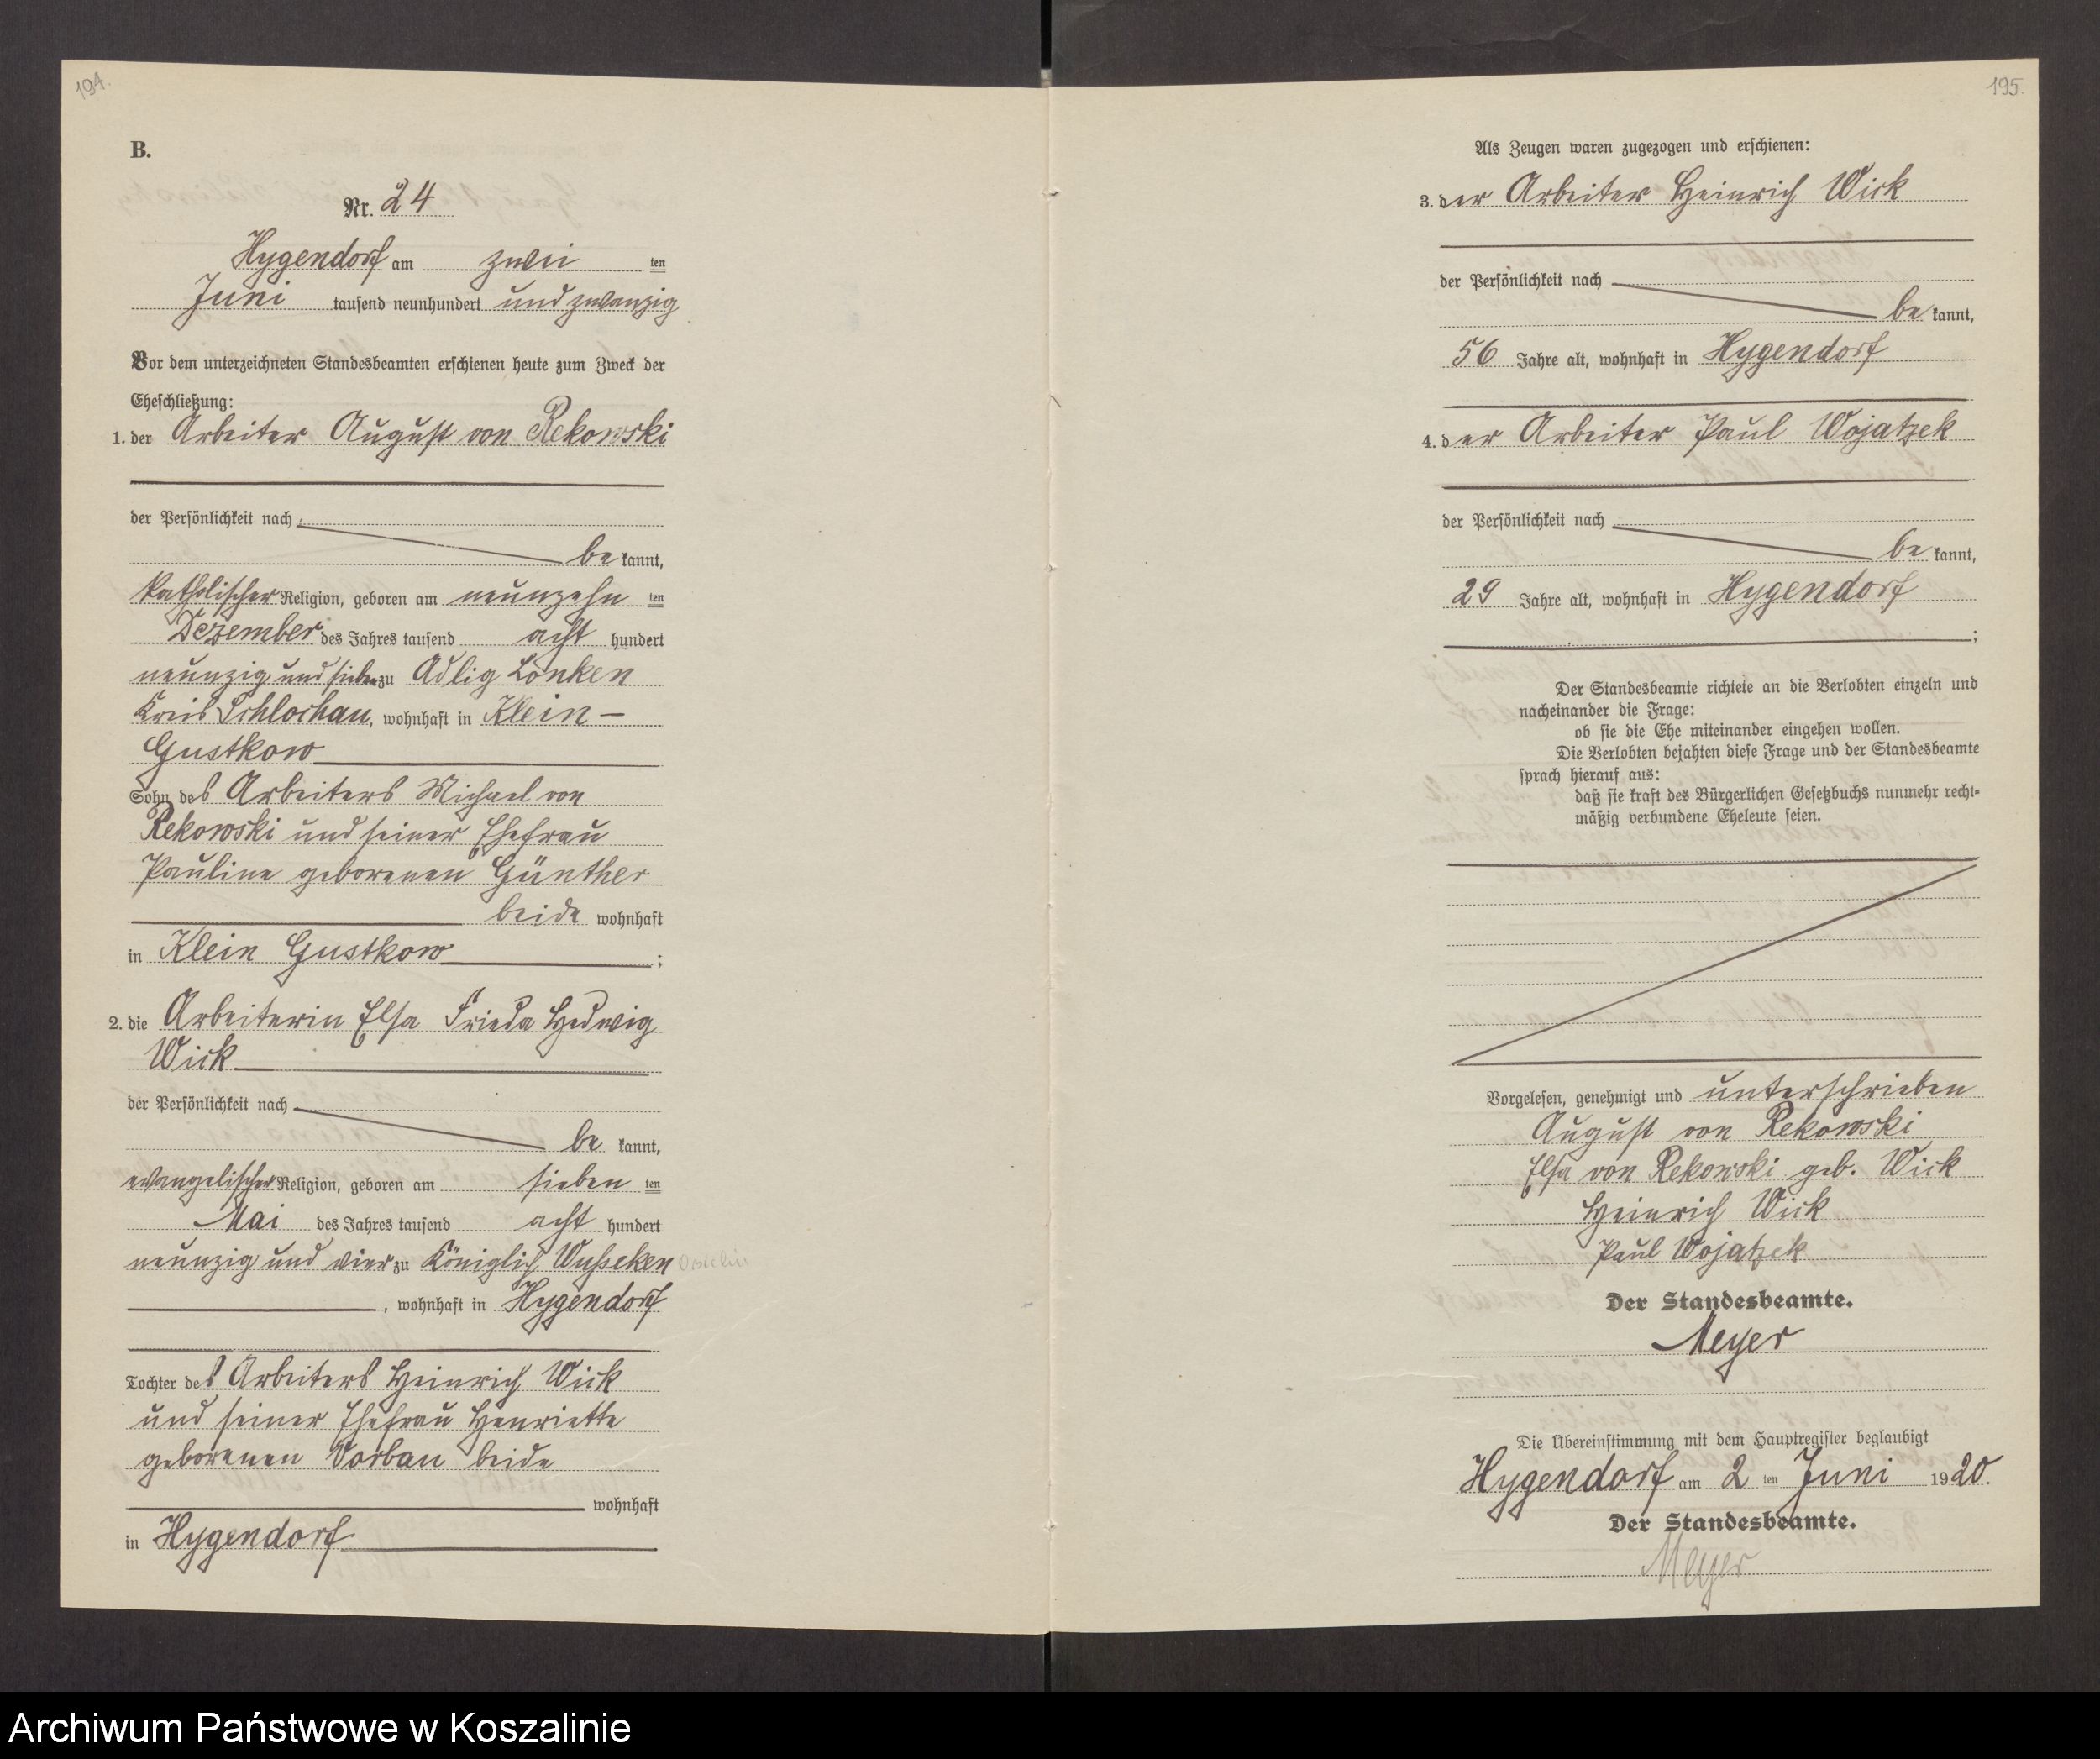 194.
B.
Nr. 24
Hygendorf am zwei ten
Juni tausend neunhundert und zwanzig
Vor dem unterzeichneten Standesbeamten erschienen heute zum Zweck der
Eheschließung:
1. der Arbeiter August von Rekowski
der Persönlichkeit nach
be kannt,
katholischer Religion, geboren am neunzehn ten
Dezember des Jahres tausend acht hundert
neunzig und sieben zu Adlig Lonken
Kreis Schlochau, wohnhaft in Klein-
Gustkow
Sohn des Arbeiters Michael von
Rekowski und seiner Ehefrau
Pauline geborenen Günther
beide wohnhaft
in Klein Gustkow ;
2. die Arbeiterin Elsa Frieda Hedwig
Wick
der Persönlichkeit nach
be kannt,
evangelischer Religion, geboren am sieben ten
Mai des Jahres tausend acht hundert
neunzig und vier zu Königlich Wusseken
, wohnhaft in Hygendorf
Tochter des Arbeiters Heinrich Wick
und seiner Ehefrau Henriette
geborenen Vorbau beide
wohnhaft
in Hygendorf
195.
Als Zeugen waren zugezogen und erschienen:
3. der Arbeiter Heinrich Wick
der Persönlichkeit nach
be kannt,
56 Jahre alt, wohnhaft in Hygendorf
4. der Arbeiter Paul Wojatzek
der Persönlichkeit nach
be kannt,
29 Jahre alt, wohnhaft in Hygendorf
;
Der Standesbeamte richtete an die Verlobten einzeln und
nacheinander die Frage:
ob sie die Ehe miteinander eingehen wollen.
Die Verlobten bejahten diese Frage und der Standesbeamte
sprach hierauf aus:
daß sie kraft des Bürgerlichen Gesetzbuchs nunmehr recht-
mäßig verbundene Eheleute seien.
Vorgelesen, genehmigt und unterschrieben
August von Rekowski
Elsa von Rekowski geb. Wick
Heinrich Wick
Paul Wojatzek
Der Standesbeamte.
Meyer
Die Übereinstimmung mit dem Hauptregister beglaubigt
Hygendorf am 2 ten Juni 1920.
Der Standesbeamte.
Meyer
Archiwum Państwowe w Koszalinie